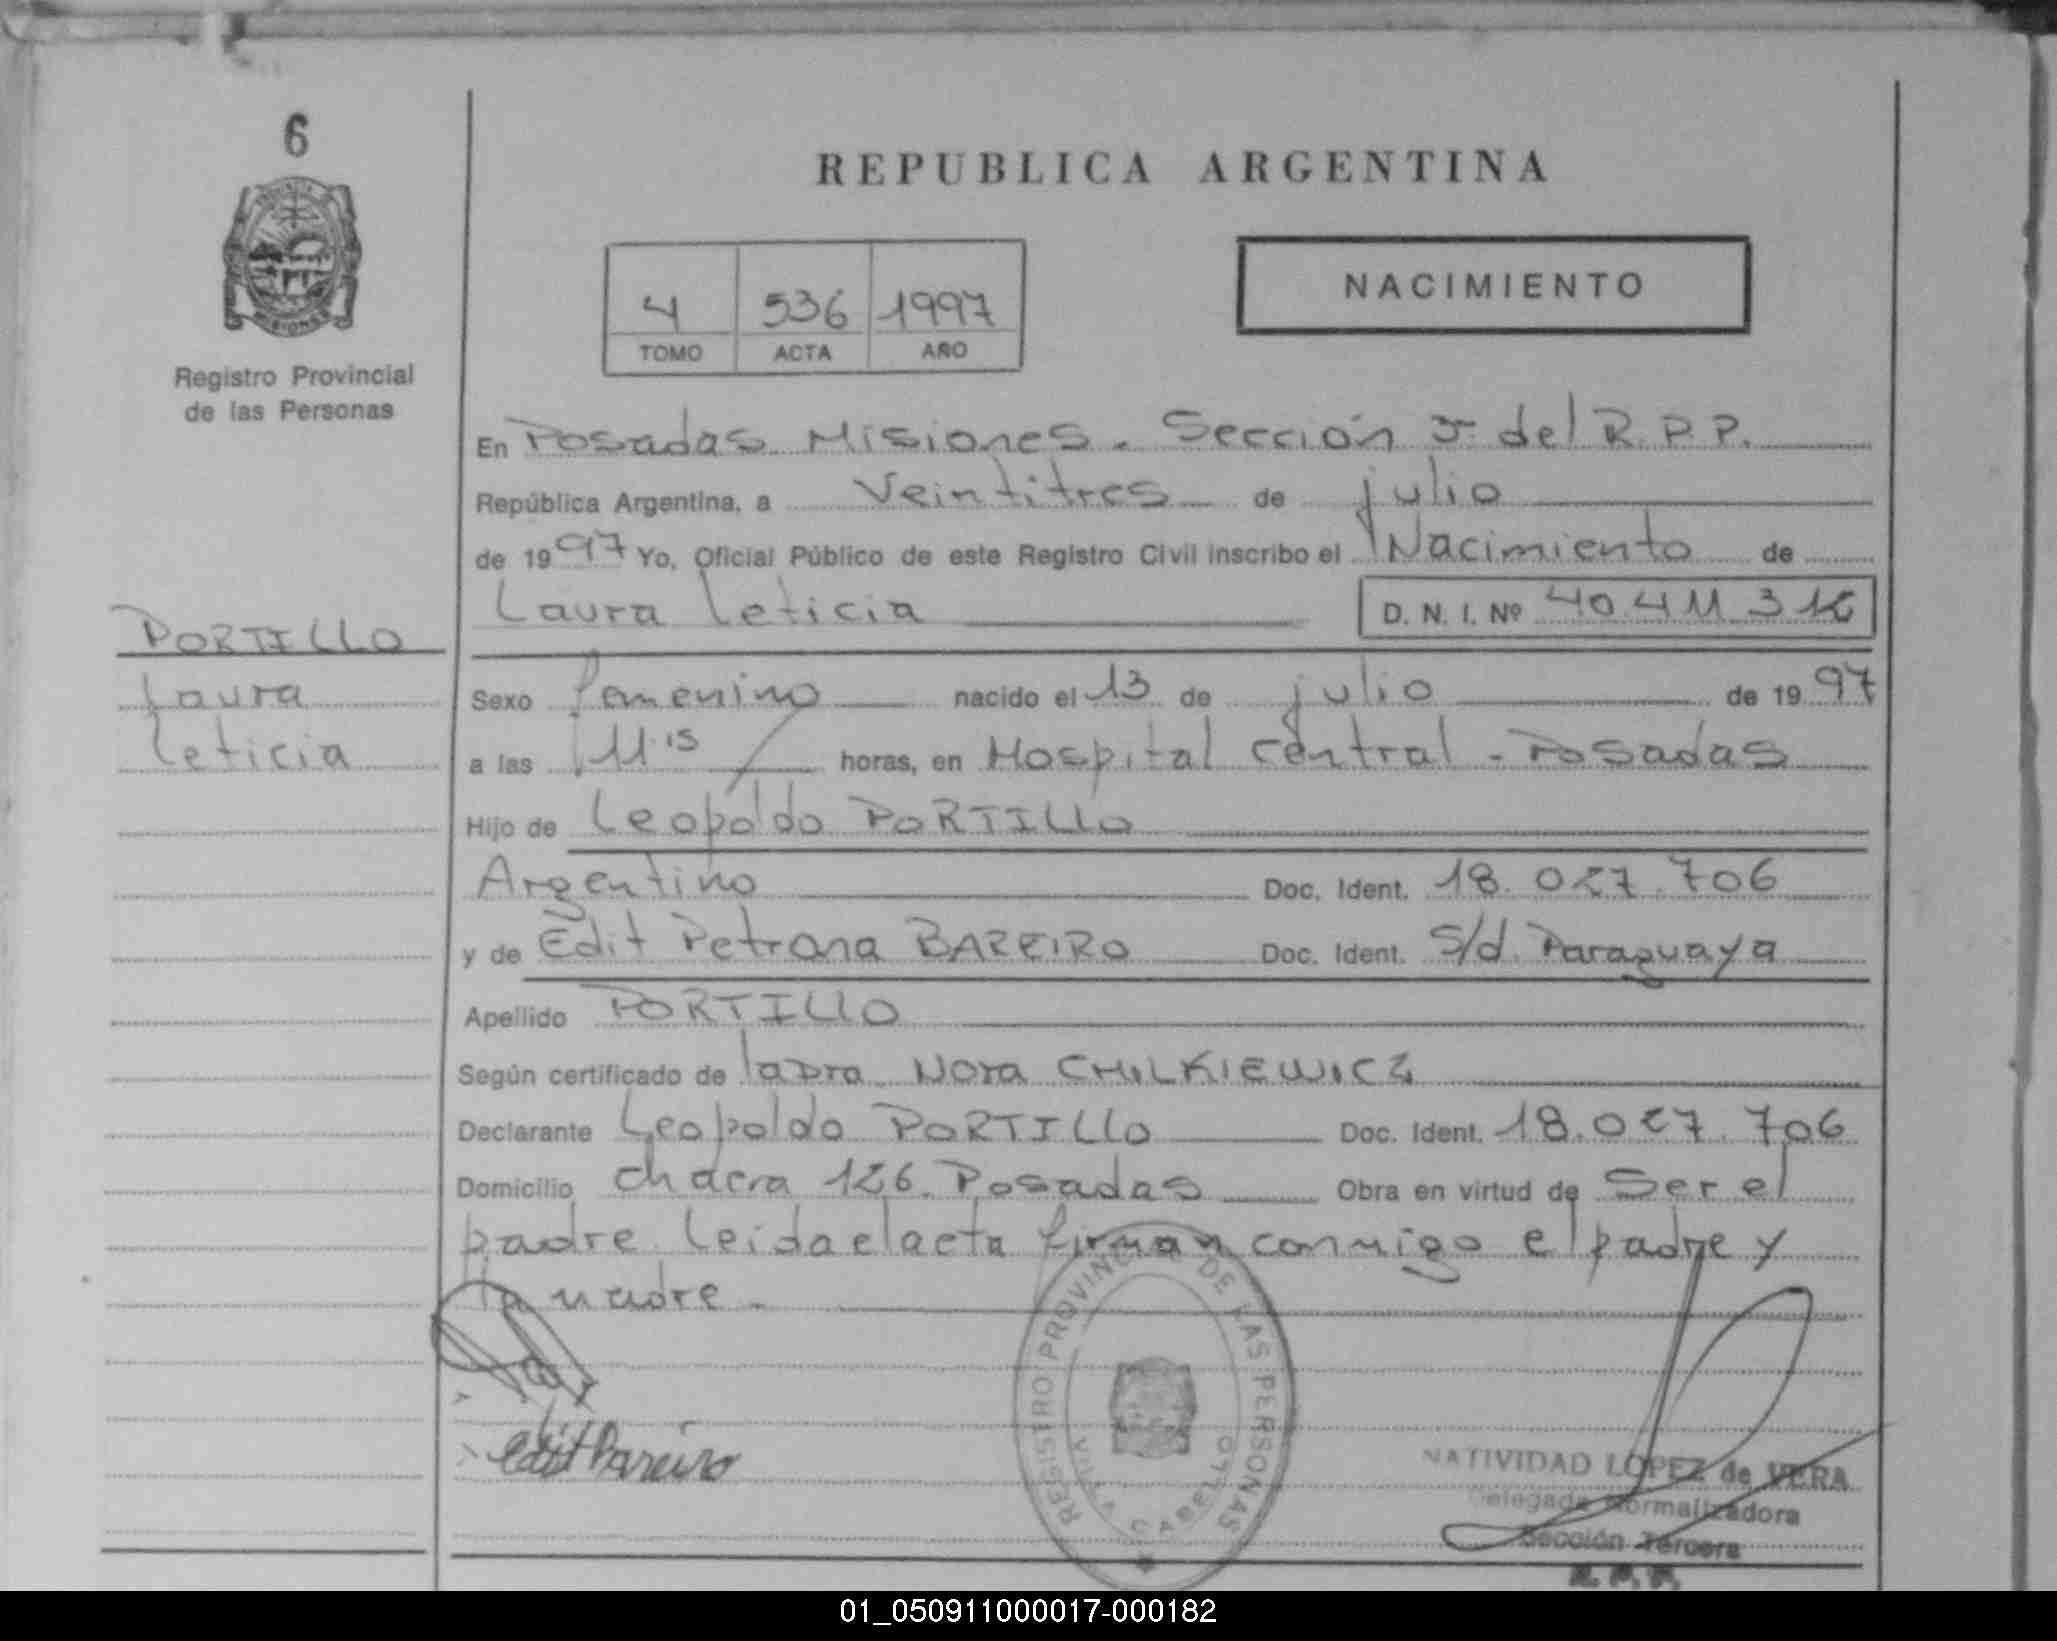 6
REPUBLICA ARGENTINA
NACIMIENTO
4 536 1997
TOMO ACTA AÑO
Registro Provincial
de las Personas
En Posadas Misiones. Sección 3ª del R.P.P.
República Argentina, a Veintitres de julio
de 1997 Yo, Oficial Público de este Registro Civil inscribo el Nacimiento de
Laura Leticia D. N. I. Nº 40.411.312
PORTILLO
Laura
Leticia
Sexo femenino nacido el 13 de julio de 1997
a las 11.15 horas, en Hospital Central - Posadas
Hijo de Leopoldo PORTILLO
Argentino Doc. Ident. 18.027.706
y de Edit Petrona BAREIRO Doc. Ident. S/d. Paraguaya
Apellido PORTILLO
Según certificado de la Dra. Nora CHILKIEWICZ
Declarante Leopoldo PORTILLO Doc. Ident. 18.027.706
Domicilio chacra 126. Posadas Obra en virtud de Ser el
padre. Leida el acta firman conmigo el padre y
la madre.
Edit Bareiro
REGISTRO PROVINCIAL DE LAS PERSONAS
VILLA CABELLO
NATIVIDAD LOPEZ de VERA
Delegada Normalizadora
Sección Tercera
R. P. P.
01_050911000017-000182